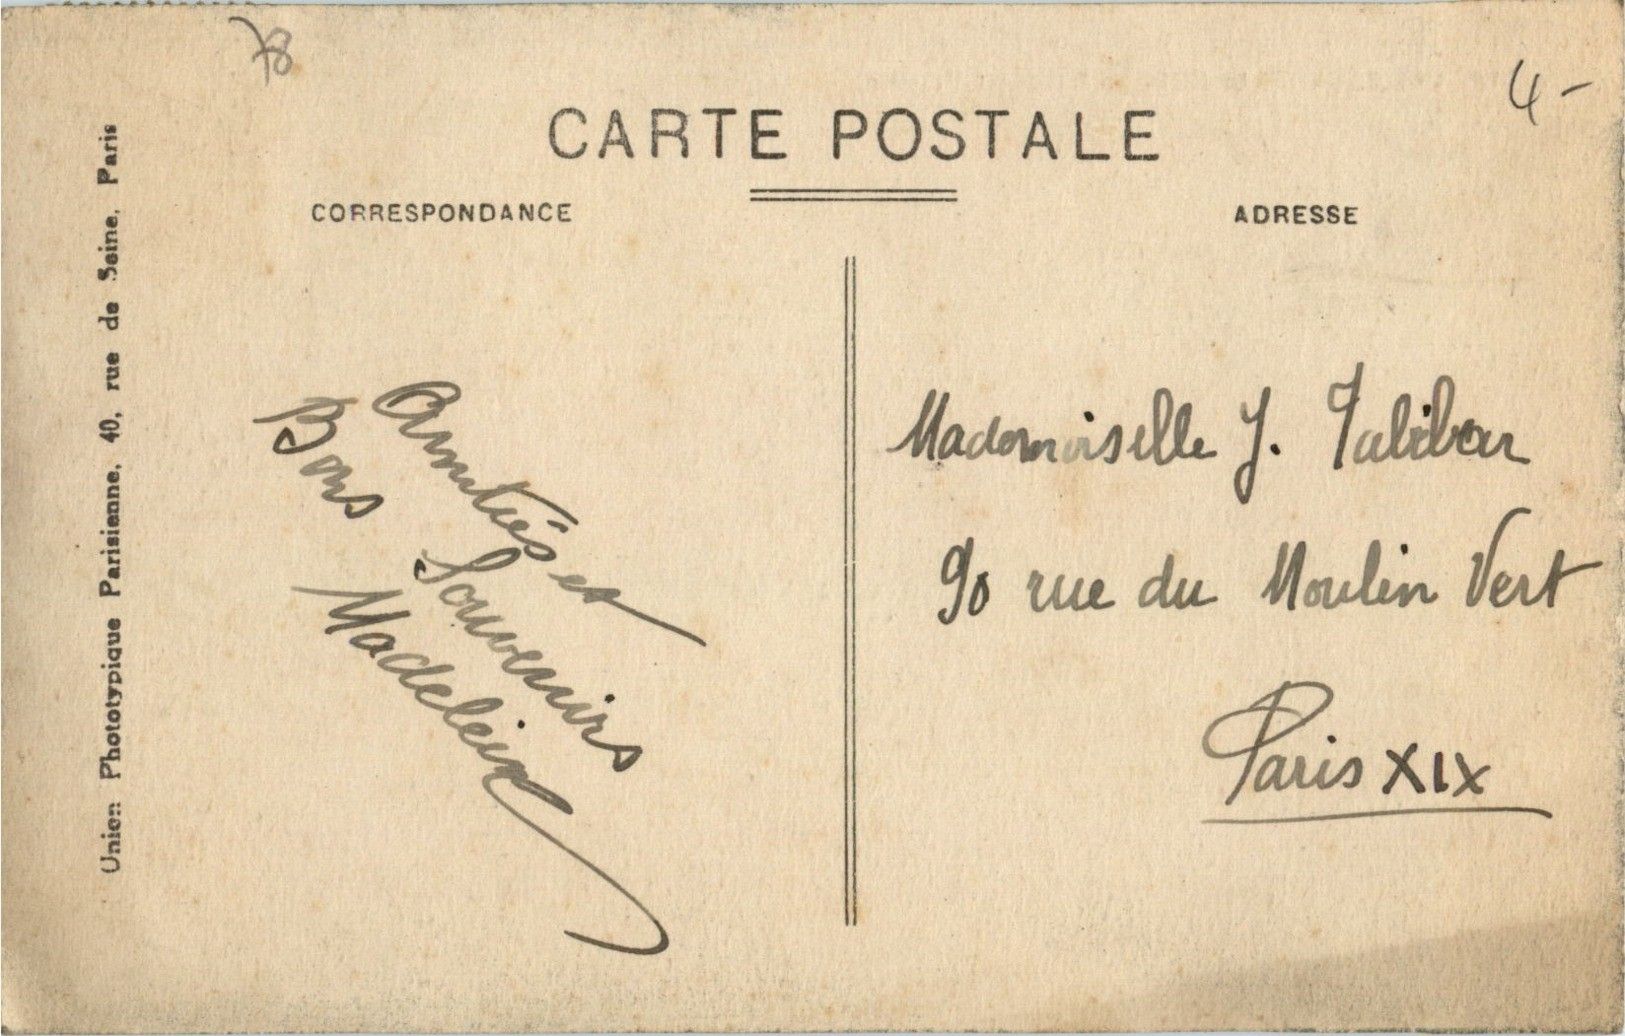 78
4-
CARTE POSTALE
CORRESPONDANCE
ADRESSE
Union Phototypique Parisienne, 40, rue de Seine, Paris
Amitiés et
Bons Souvenirs
Madeleine
Mademoiselle J.
90 rue du Moulin Vert
Paris XIX